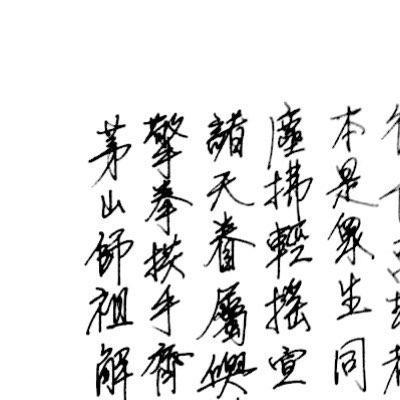 本是眾生同
塵拂輕搖宣
諸天眷屬與
擎拳挾手齊
茅山師祖解